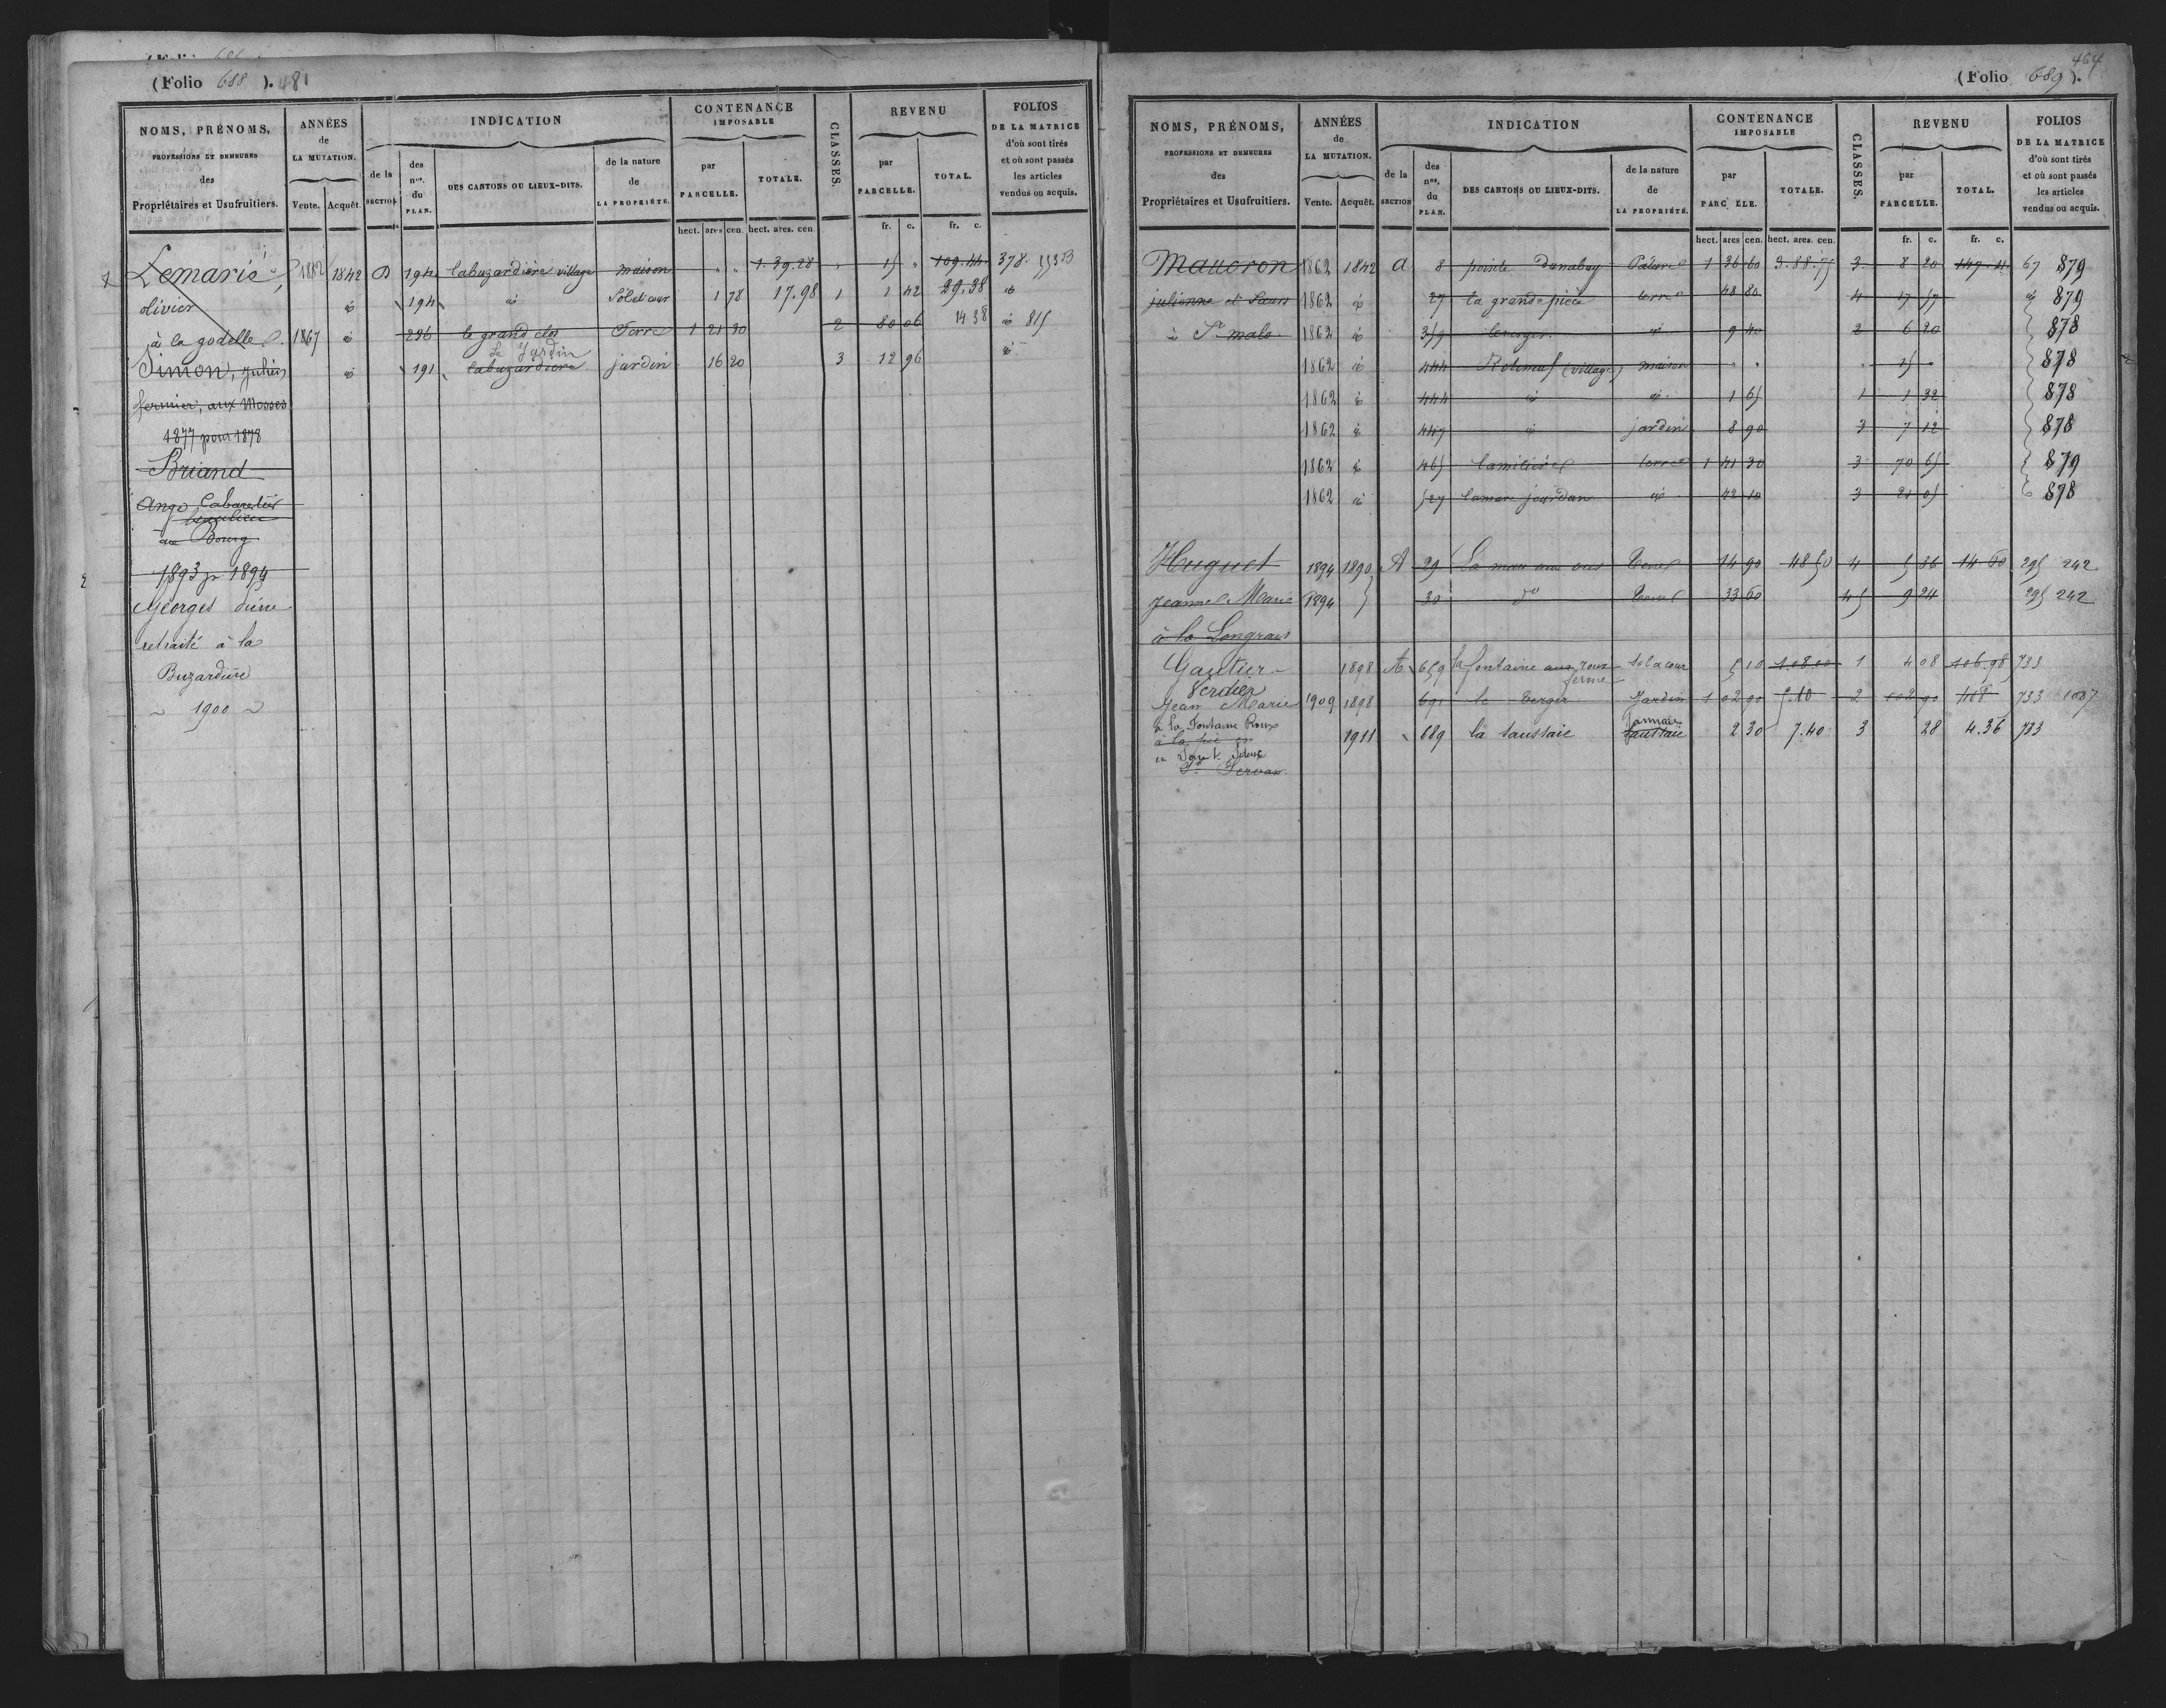 (Folio 688). 481
NOMS, PRÉNOMS, PROFESSIONS ET DEMEURES des Propriétaires et Usufruitiers.
ANNÉES de LA MUTATION. Vente. Acquêt.
INDICATION de la SECTION des nos. du PLAN. DES CANTONS OU LIEUX-DITS. de la nature de LA PROPRIÉTÉ.
CONTENANCE IMPOSABLE par PARCELLE. TOTALE.
CLASSES.
REVENU par PARCELLE. TOTAL.
FOLIOS DE LA MATRICE d'où sont tirés et où sont passés les articles vendus ou acquis.
hect. ares cen. hect. ares. cen. fr. c. fr. c.
Lemarié 1882 1842 D 194 labuzardière village maison " " 1.39.28 " 15 " 109.44 378. 553
olivier id 194 id Sol et cour 1 78 17.98 1 1 42 29.38 id
à la godelle 1867 id 236 le grand clos Terre 1 21 30 2 80 06 14 38 id 815
Le Jardin
Simon, Julien id 191 labuzardière jardin 16 20 3 12 96 id
fermier, aux Mosses
1877 pour 1878
Briand
Ange Cabaretier
au Bourg
1893 pr 1894
Georges
retraité à la
Buzardière
1900
(Folio 689). 464
NOMS, PRÉNOMS, PROFESSIONS ET DEMEURES des Propriétaires et Usufruitiers.
ANNÉES de LA MUTATION. Vente. Acquêt.
INDICATION de la SECTION des nos. du PLAN. DES CANTONS OU LIEUX-DITS. de la nature de LA PROPRIÉTÉ.
CONTENANCE IMPOSABLE par PARCELLE. TOTALE.
CLASSES.
REVENU par PARCELLE. TOTAL.
FOLIOS DE LA MATRICE d'où sont tirés et où sont passés les articles vendus ou acquis.
hect. ares cen. hect. ares. cen. fr. c. fr. c.
Maucron 1862 1842 A 8 pointe Dunabay Pature 1 36 60 3.88.75 3 8 20 147.41 67 879
julienne et Sœurs 1862 id 27 la grande pièce terre 48 80 4 17 57 id 879
à St malo 1862 id 359 leverger id 9 40 2 6 20 878
1862 id 444 Roteneuf (village) maison " " " 15 " 878
1862 id 444 id id 1 65 1 1 32 878
1862 id 447 id jardin 8 90 3 7 12 878
1862 id 465 lamilière terre 1 41 30 3 70 65 879
1862 id 527 lamare jourdan id 42 10 3 21 05 878
Huguet 1894 1890 A 29 La mare aux Terre 14 90 48 50 4 5 36 14 60 295 242
Jeanne Marie 1894 30 do Terre 33 60 45 9 24 295 242
à la Longrais
Gautier 1898 A 659 la fontaine aux roux sol à cour 5 10 1.08.00 1 4 08 106.98 733
ferme
Verdier
Jean Marie 1909 1898 691 le verger Jardin 1 02 90 5.10 2 102 90 4.08 733 1007
à la Fontaine Roux
1911 689 la saussaie saussaie 2 30 7.40 3 28 4.36 733
St Servan